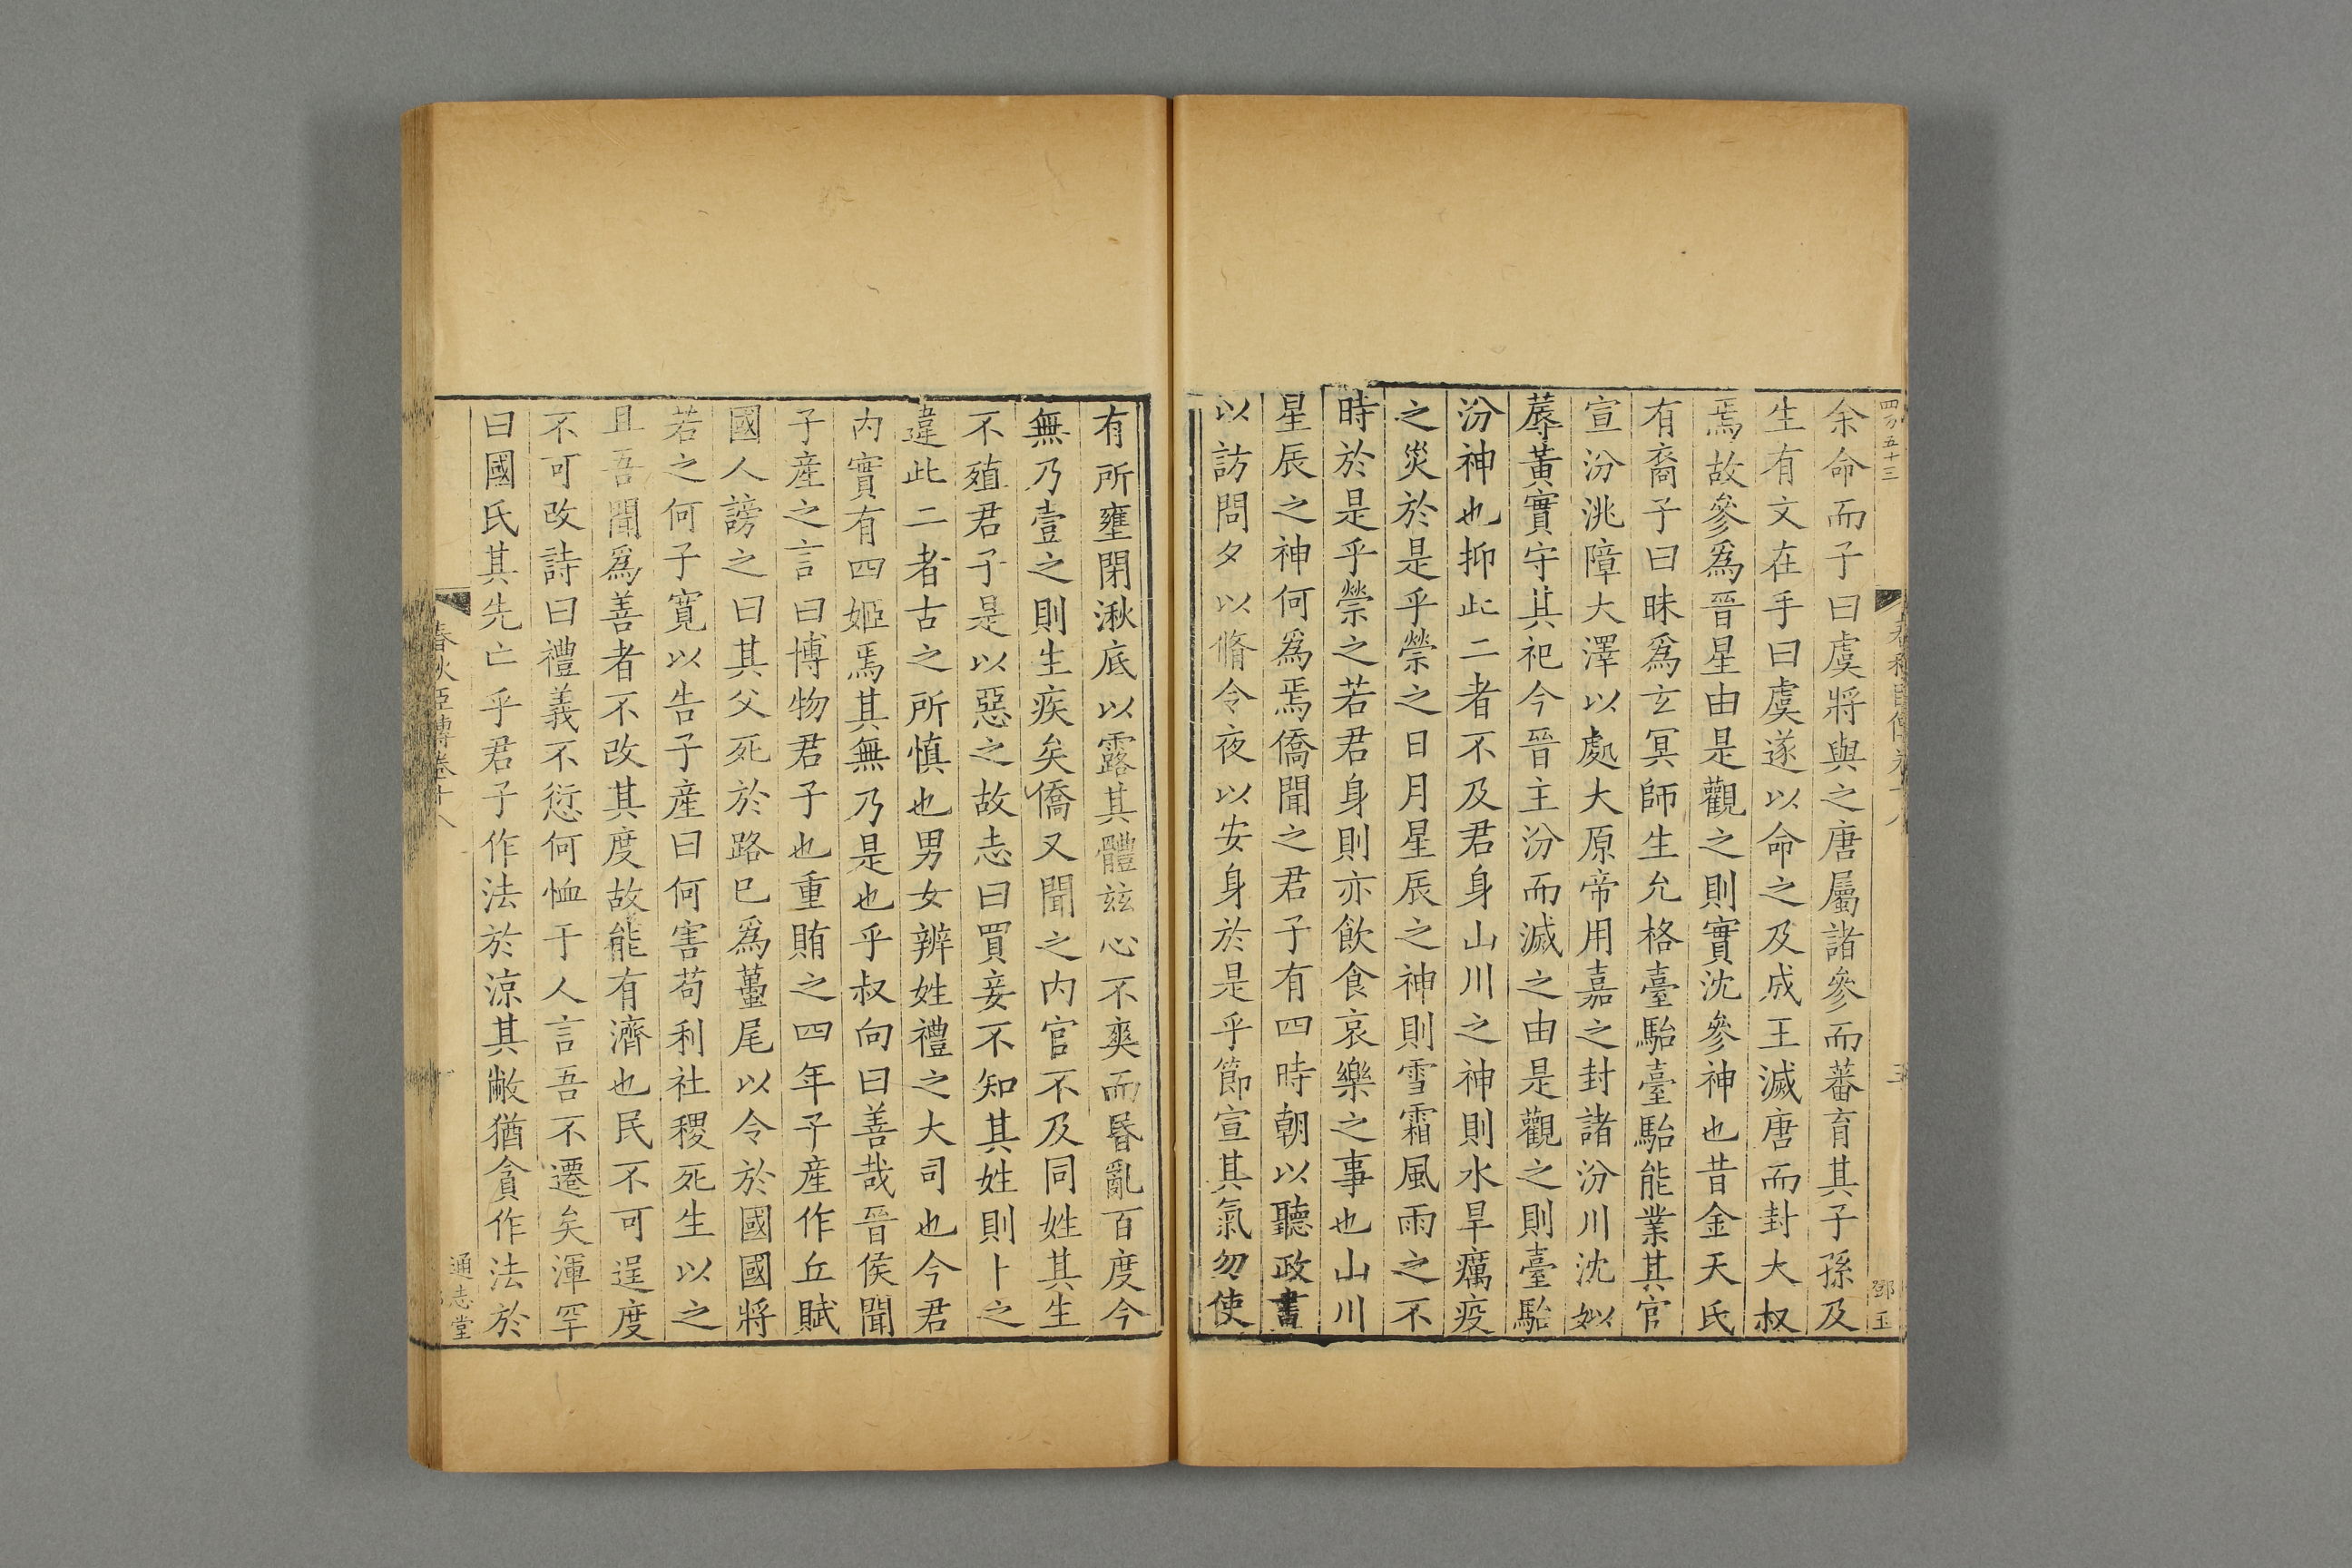 四分五十三
余命而子曰虞將與之唐屬諸參而蕃育其子孫及
生有文在手曰虞遂以命之及成王滅唐而封大叔
焉故參爲晉星由是觀之則實沈參神也昔金天氏
有裔子曰昧爲玄冥師生允格臺駘臺駘能業其官
宣汾洮障大澤以處大原帝用嘉之封諸汾川沈姒
蓐黃實守其祀今晉主汾而滅之由是觀之則臺駘
汾神也抑此二者不及君身山川之神則水旱癘疫
之災於是乎禜之日月星辰之神則雪霜風雨之不
時於是乎禜之若君身則亦飲食哀樂之事也山川
星辰之神何爲焉僑聞之君子有四時朝以聽政晝
以訪問夕以脩令夜以安身於是乎節宣其氣勿使
有所壅閉湫底以露其體兹心不爽而昬亂百度今
無乃壹之則生疾矣僑又聞之内官不及同姓其生
不殖君子是以惡之故志曰買妾不知其姓則卜之
違此二者古之所慎也男女辨姓禮之大司也今君
内實有四姬焉其無乃是也乎叔向曰善哉晉侯聞
子產之言曰博物君子也重賄之四年子產作丘賦
國人謗之曰其父死於路已爲蠆尾以令於國國將
若之何子寬以告子產曰何害苟利社稷死生以之
且吾聞爲善者不改其度故能有濟也民不可逞度
不可改詩曰禮義不愆何恤于人言吾不遷矣渾罕
曰國氏其先亡乎君子作法於涼其敝猶貪作法於
春秋臣傳卷十八
通志堂